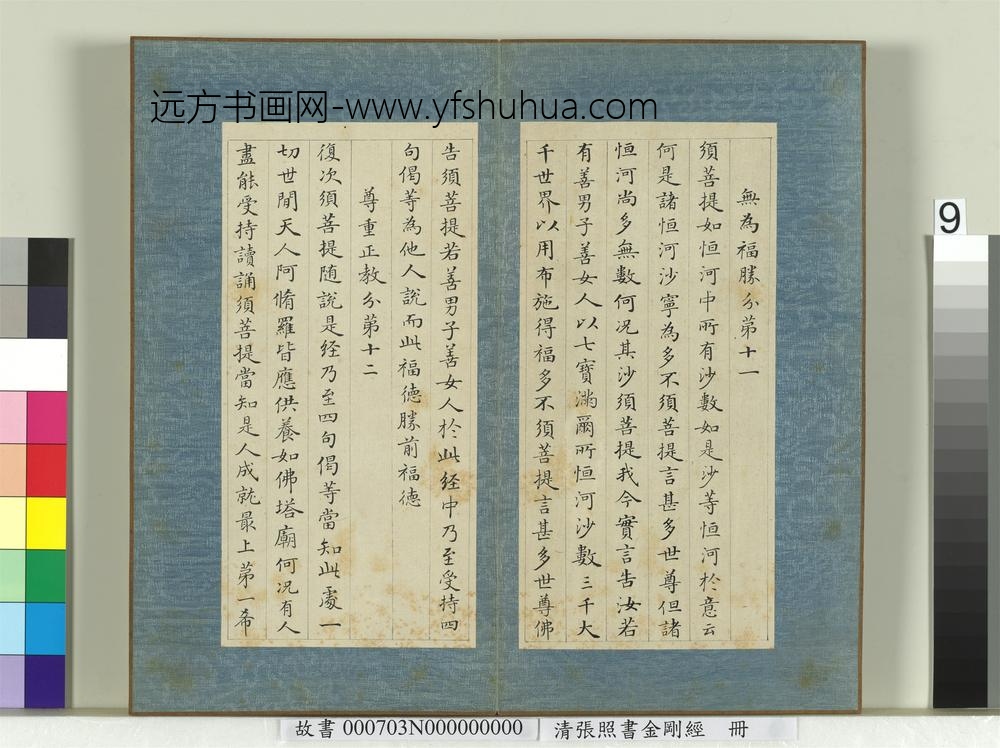 远方书画网-www.yfshuhua.com
無為福勝分第十一
須菩提如恒河中所有沙數如是沙等恒河於意云
何是諸恒河沙寧為多不須菩提言甚多世尊但諸
恒河尚多無數何況其沙須菩提我今實言告汝若
有善男子善女人以七寶滿爾所恒河沙數三千大
千世界以用布施得福多不須菩提言甚多世尊佛
告須菩提若善男子善女人於此経中乃至受持四
句偈等為他人說而此福德勝前福德
尊重正教分第十二
復次須菩提随說是経乃至四句偈等當知此處一
切世間天人阿脩羅皆應供養如佛塔廟何況有人
盡能受持讀誦須菩提當知是人成就最上第一希
9
故書 000703N000000000 清張照書金剛經 冊